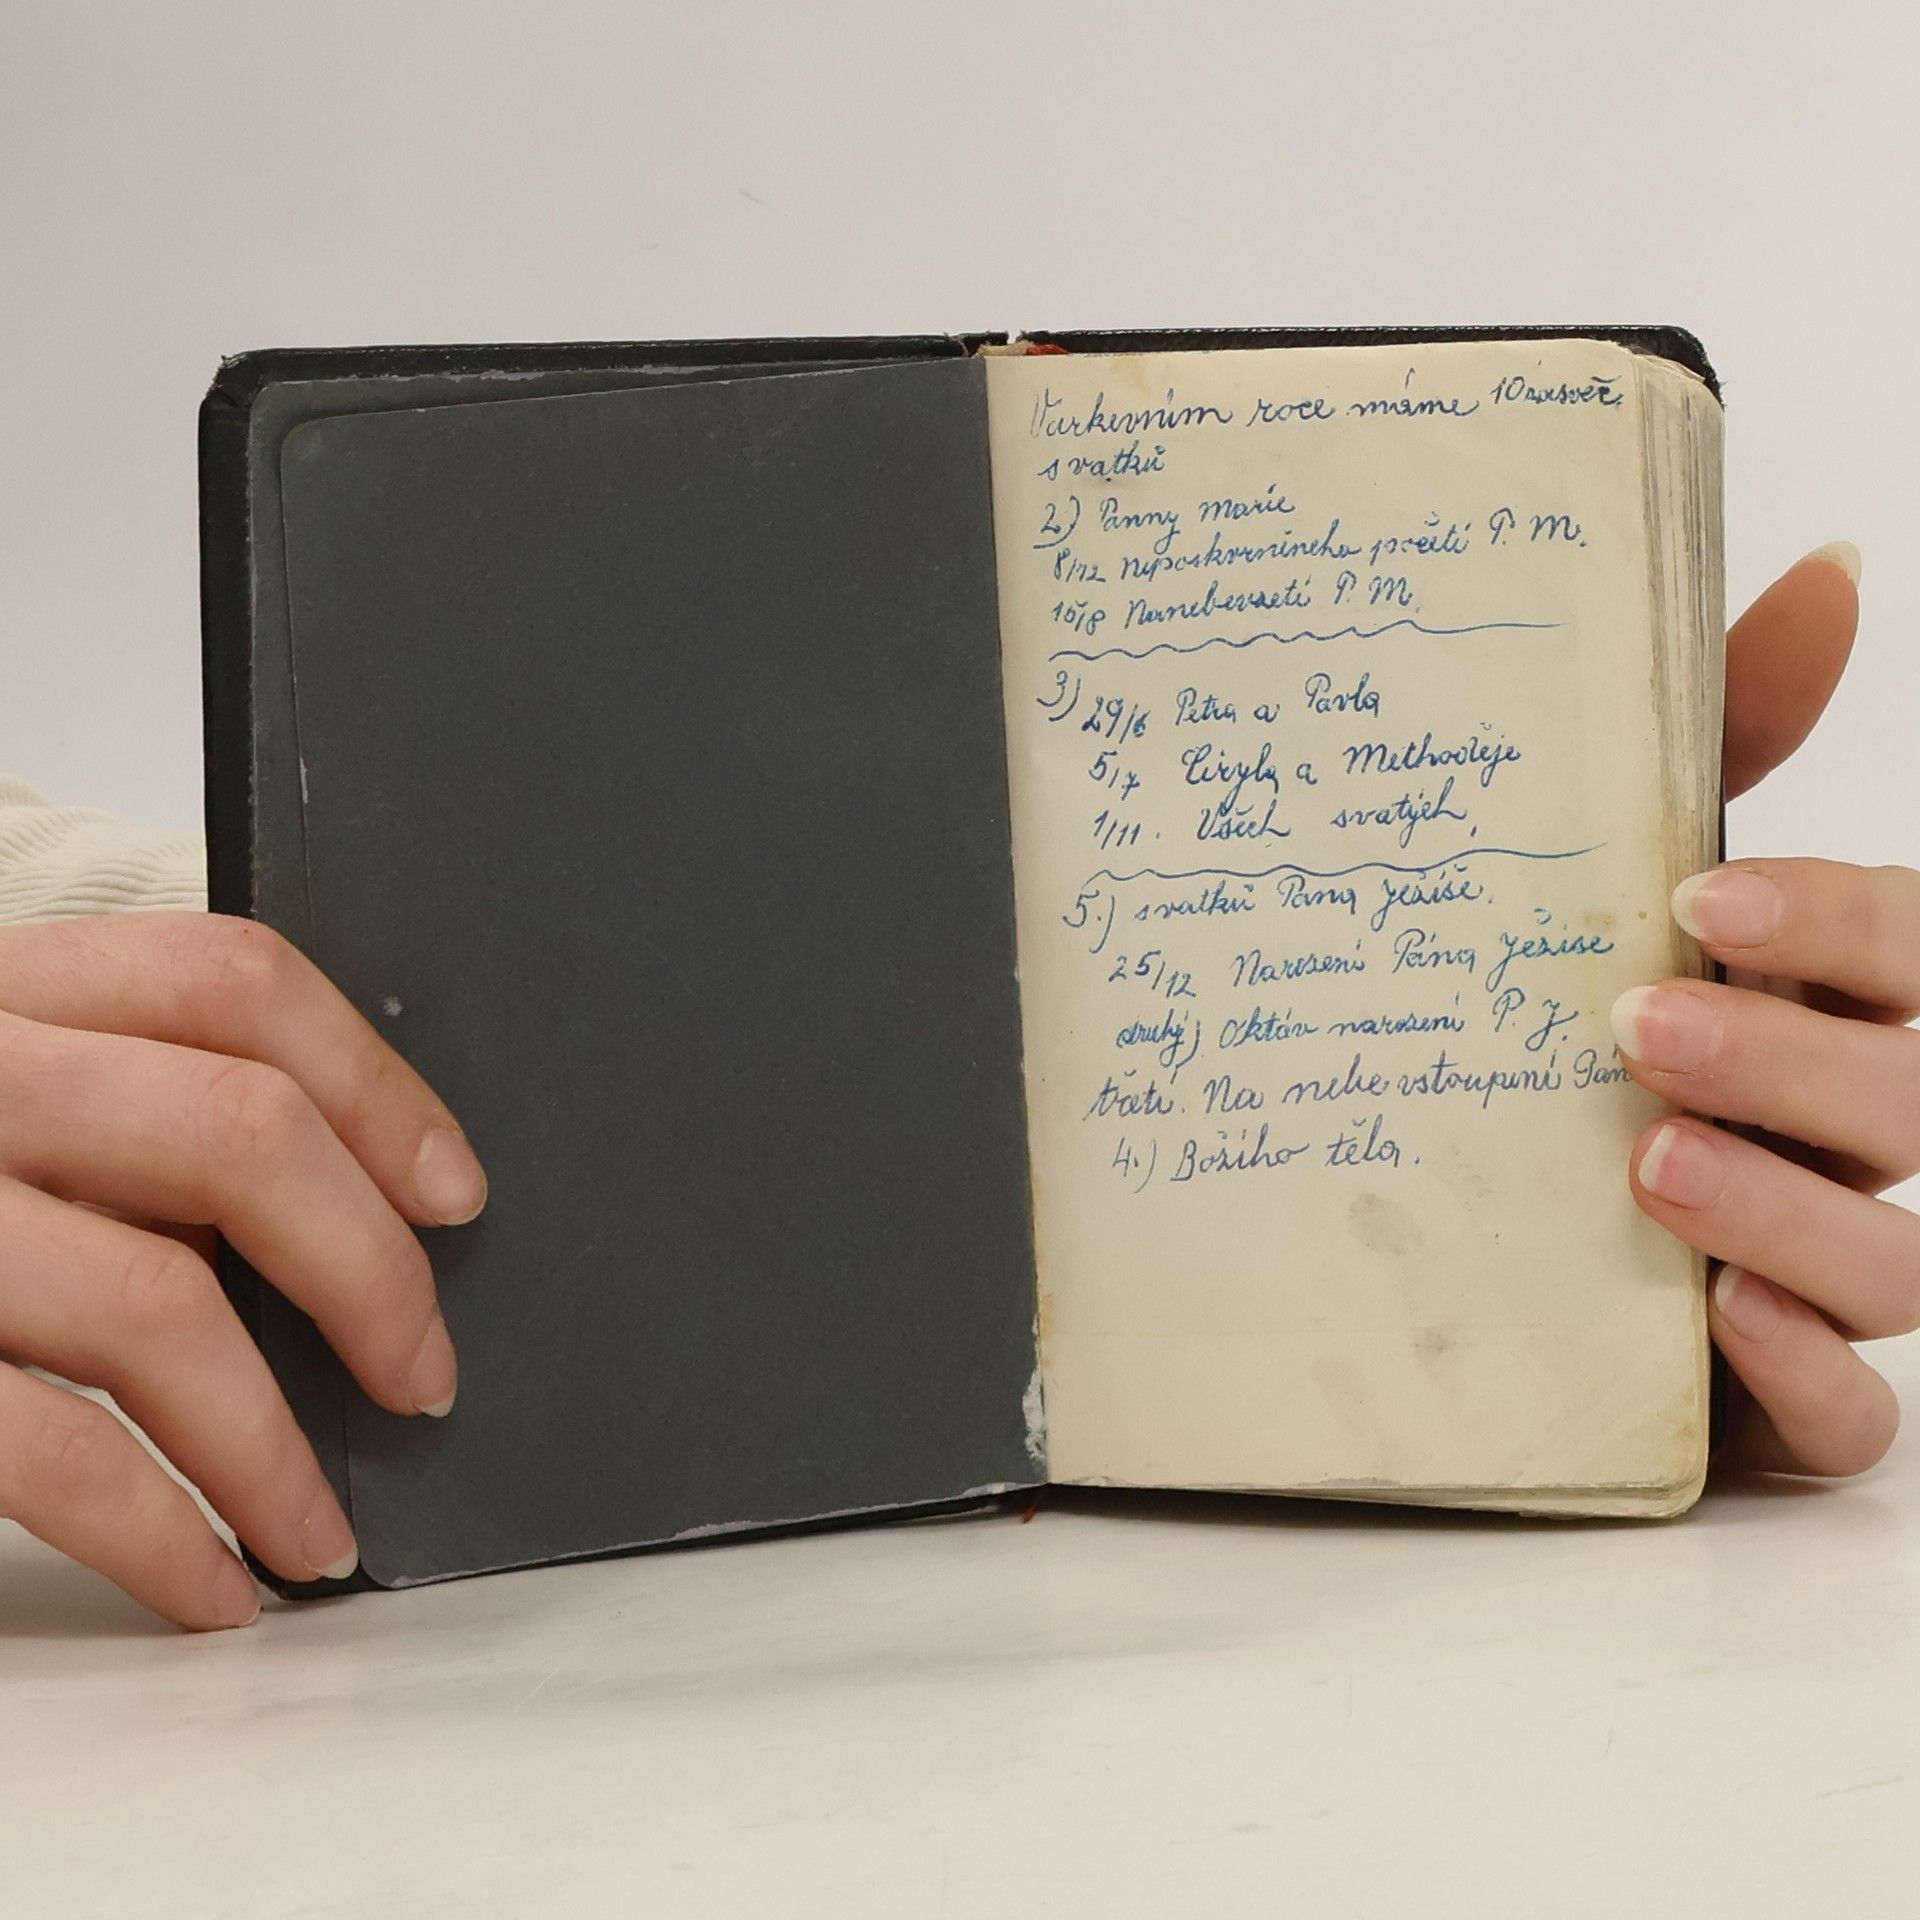 Varkevním roce máme 10 zasvěc.
svatků
2) Panny Marie
8/12 Neposkvrněneho početí P. M.
15/8 Nanebevzetí P. M.
3) 29/6 Petra a Pavla
5/7 Ciryla a Methoděje
1/11. Všech svatých,
5.) svatků Pana Ježíše.
25/12 Narozeni Pána Ježíše
druhý) Oktáv narozeni P. J.
třetí. Na nebe vstoupení Pán
4.) Božího těla.